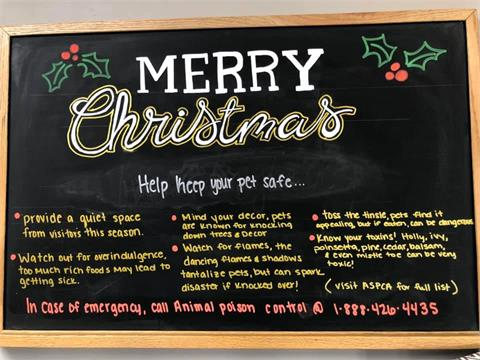 MERRY
Christmas
Help keep your pet safe...
• provide a quiet space
from visitors this season.
• Watch out for overindulgence,
too much rich foods may lead to
getting sick.
• Mind your decor, pets
are known for knocking
down trees & decor
• Watch for flames, the
dancing flames & shadows
tantalize pets, but can spark
disaster if knocked over!
• toss the tinsle, pets find it
appealing, but if eaten, can be dangerous
• Know your toxins! Holly, ivy,
poinsetta, pine, cedar, balsam,
& even mistle toe can be very
toxic!
(visit ASPCA for full list)
In case of emergency, call Animal poison control @ 1-888-426-4435